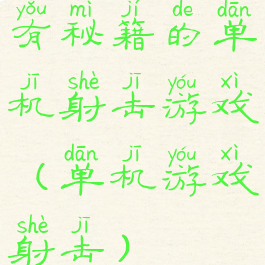 yǒu mì jí de dān
有秘籍的单
jī shè jī yóu xì
机射击游戏
dān jī yóu xì
（单机游戏
shè jī
射击）